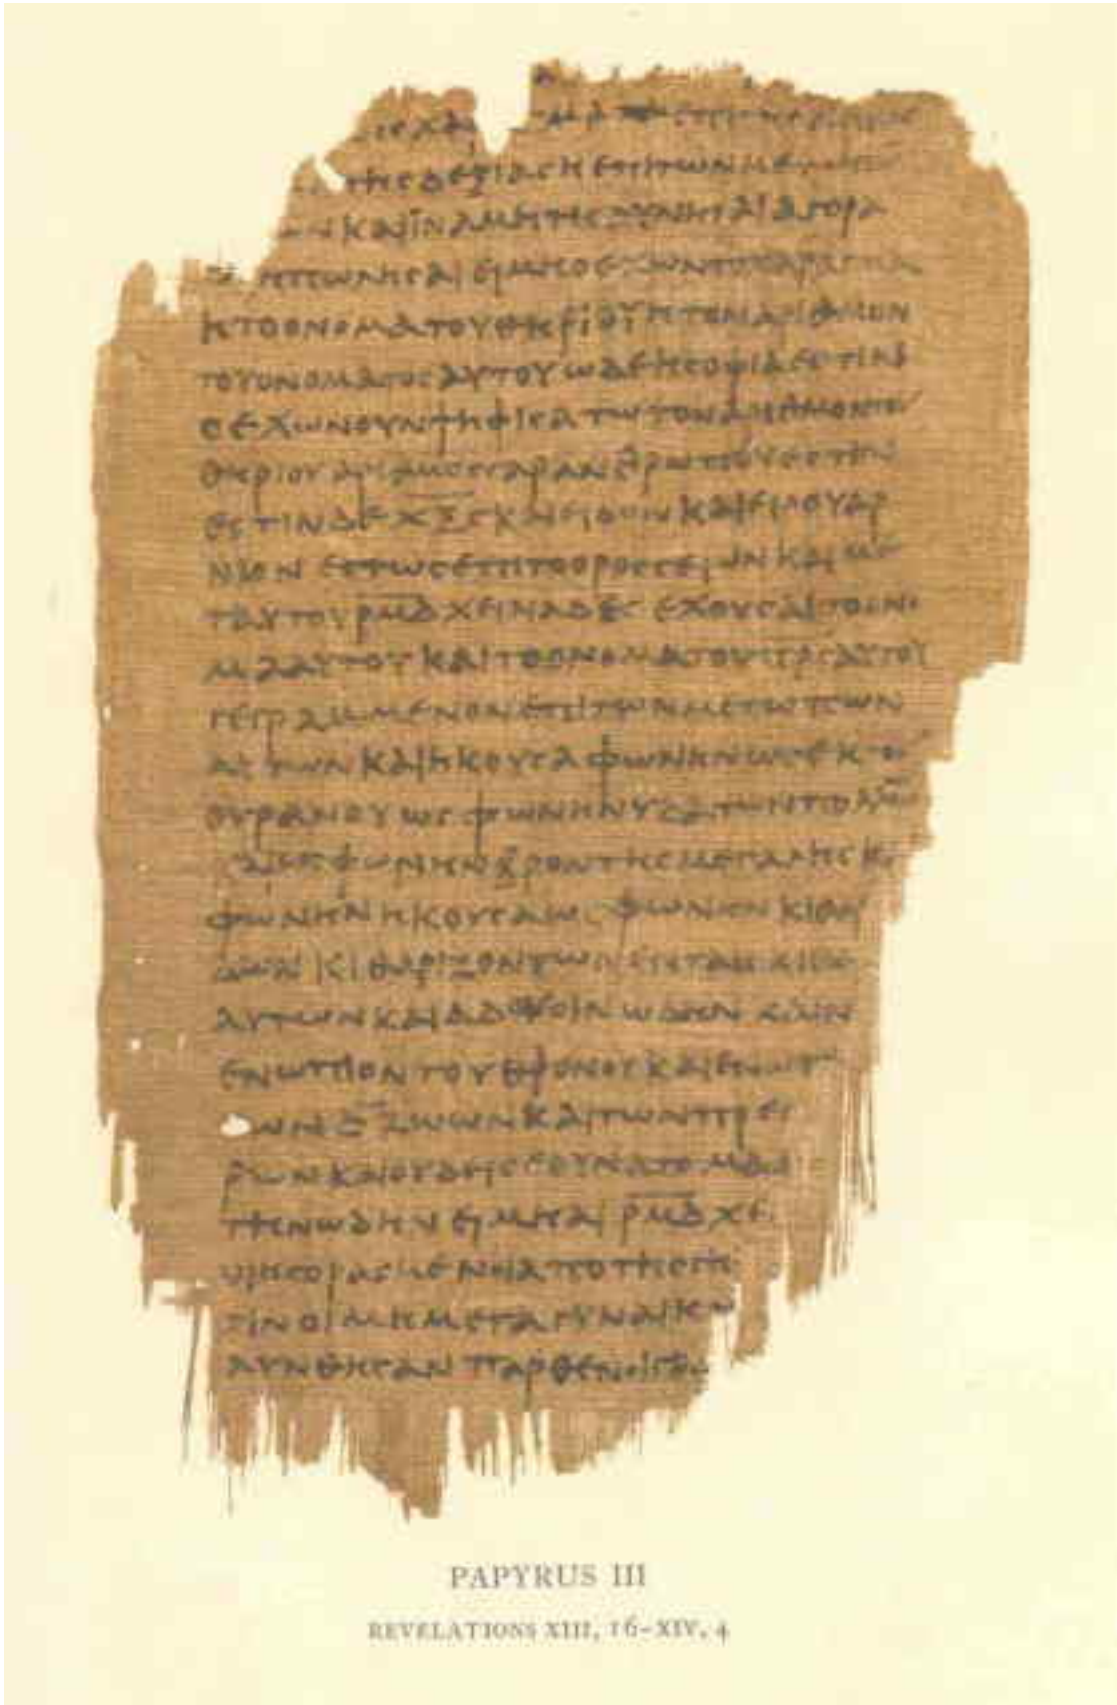 ΤΗϹ ΔΕΞΙΑϹ Η ΕΠΙ ΤΩΝ
ΚΑΙ ΙΝΑ ΜΗΤΗϹ ΔΥΝΗΤΑΙ ΑΓΟΡΑ
Η ΠΩΛΗϹΑΙ ΕΙ ΜΗ Ο ΕΧΩΝ ΤΟ ΧΑΡΑΓΜΑ
Η ΤΟ ΟΝΟΜΑ ΤΟΥ ΘΗΡΙΟΥ Η ΤΟΝ ΑΡΙΘΜΟΝ
ΤΟΥ ΟΝΟΜΑΤΟϹ ΑΥΤΟΥ ΩΔΕ Η ϹΟΦΙΑ ΕϹΤΙΝ
Ο ΕΧΩΝ ΟΥΝ ΨΗΦΙϹΑΤΩ ΤΟΝ ΑΡΙΘΜΟΝ ΤΟΥ
ΘΗΡΙΟΥ ΑΡΙΘΜΟϹ ΓΑΡ ΑΝΘΡΩΠΟΥ ΕϹΤΙΝ
ΕϹΤΙΝ ΔΕ ΧΞϚ ΚΑΙ ΕΙΔΟΝ ΚΑΙ ΕΙΔΟΥ ΑΡ
ΝΙΟΝ ΕϹΤΩϹ ΕΠΙ ΤΟ ΟΡΟϹ ϹΕΙΩΝ ΚΑΙ ΜΕ
ΤΑΥΤΟΥ ΡΜΔ ΧΕΙΛΙΑΔΕϹ ΕΧΟΥϹΑΙ ΤΟ ΟΝΟ
ΜΑ ΑΥΤΟΥ ΚΑΙ ΤΟ ΟΝΟΜΑ ΤΟΥ ΠΡϹ ΑΥΤΟΥ
ΓΕΓΡΑΜΜΕΝΟΝ ΕΠΙ ΤΩΝ ΜΕΤΩΠΩΝ
ΑΥΤΩΝ ΚΑΙ ΗΚΟΥϹΑ ΦΩΝΗΝ ΩϹ ΕΚ ΤΟΥ
ΟΥΡΑΝΟΥ ΩϹ ΦΩΝΗΝ ΥΔΑΤΩΝ ΠΟΛΛΩΝ
ΚΑΙ ΩϹ ΦΩΝΗΝ ΒΡΟΝΤΗϹ ΜΕΓΑΛΗϹ Κ
ΦΩΝΗΝ ΗΚΟΥϹΑ ΩϹ ΦΩΝΗΝ ΚΙΘΑ
ΔΩΝ ΚΙΘΑΡΙΖΟΝΤΩΝ ΕΝ ΤΑΙϹ ΚΙΘΑ
ΑΥΤΩΝ ΚΑΙ ΑΔΟΥϹΙΝ ΩΔΗΝ ΚΑΙΝ
ΕΝΩΠΙΟΝ ΤΟΥ ΘΡΟΝΟΥ ΚΑΙ ΕΝΩΠ
ΤΩΝ Δ ΖΩΩΝ ΚΑΙ ΤΩΝ ΠΡΕϹ
ΡΩΝ ΚΑΙ ΟΥΔΕΙϹ ΕΔΥΝΑΤΟ ΜΑΘ
ΤΗΝ ΩΔΗΝ ΕΙ ΜΗ ΑΙ ΡΜΔ ΧΕΙ
ΟΙ ΗΓΟΡΑϹΜΕΝΟΙ ΑΠΟ ΤΗϹ ΓΗϹ
ΕΙϹΙΝ ΟΙ ΜΗ ΜΕΤΑ ΓΥΝΑΙΚΩ
ΛΥΝΘΗϹΑΝ ΠΑΡΘΕΝΟΙ
PAPYRUS III
REVELATIONS XIII, 16–XIV, 4